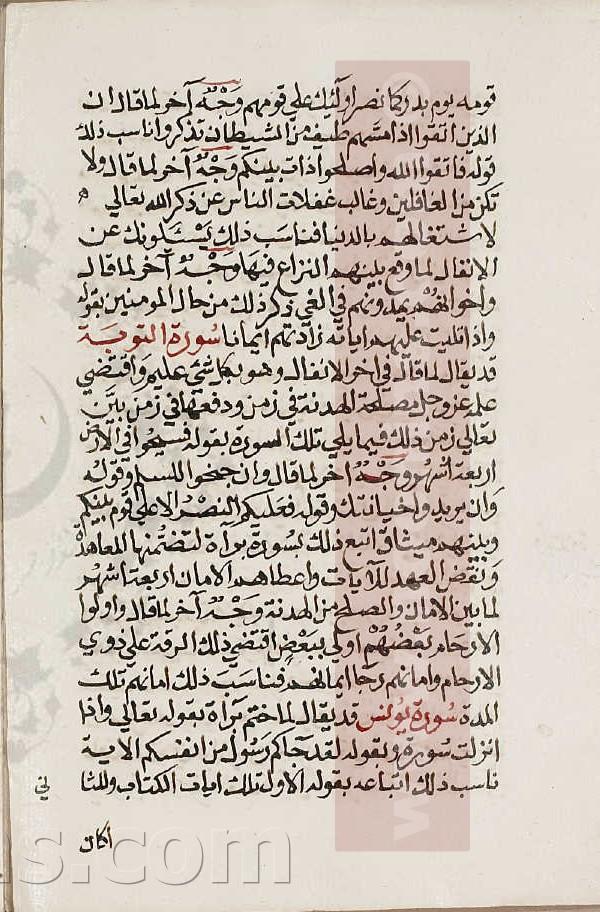 قومه يوم بدر كما نصر اولئك علي قومهم وَجْهٌ آخر لما قال ان
الذين اتقوا اذا مسّهم طيف من الشيطان تذكروا ناسب ذلك
قوله فاتقوا الله واصلحوا ذات بينكم وَجْهٌ آخر لما قال ولا
تكن من الغافلين وغالب غفلات الناس عن ذكر الله تعالي
لاشتغالهم بالدنيا فناسَب ذلك يَسْئَلونك عن
الانفال لما وقع بينهم النزاع فيها وَجْهٌ آخر لما قال
واخوانهُم يمدونهم في الغي ذكر ذلك من حال المومنين بقوله
واذا تليت عليهم اياته زادتهم ايمانا سُورة التوبَة
قد يقال لما قال في اخر الانفال وهو بكل شئ عليم واقتضي
علمه عزوجل مصلحة الهدنة في زمن ودفعها في زمن بيّن
تعالي زمن ذلك فيما يلي تلك السورة بقوله فسيحوا في الارض
اربعة اشهر وَجْهٌ اخر لما قال وان جنحوا للسلم وقوله
وان يريدوا خيانتك وقوله فعليكم النصْرُ الا علي قوم بينكم
وبينهم ميثاق اتبع ذلك بسورة برآة لتضمّنها المعاهدة
ونقض العهد للآيات واعطاهم الامان اربعة اشهر
لما بين الامان والصلح من الهدنة وَجْهٌ آخر لما قال واولوا
الارحام بَعْضُهُمْ اولي ببَعْضٍ اقتضي ذلك الرقة علي ذوي
الارحام وامانهم رجا ايمانهم فناسَبَ ذلك امانهم تلك
المدة سُورة يُونُس قد يقال لما ختم برآة بقوله تعالي واذا
انزلت سُورة وبقوله لقد جاكم رَسُول من انفسكم الاية
ناسب ذلك اتباعه بقوله الاول تلك ايات الكتاب وللثا
ني
أكان
s.com